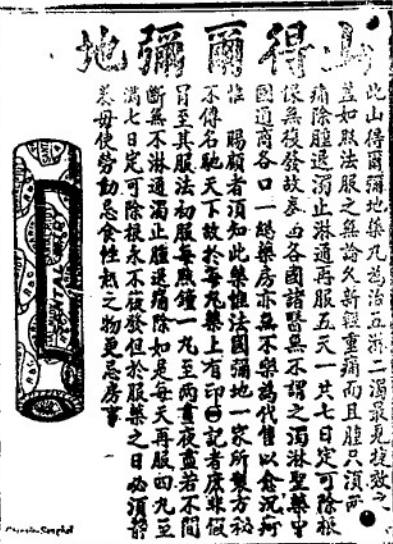 山得爾彌地
此山得爾彌地藥丸為治五淋二濁最見捷效之
益如照法服之無論久新輕重痛而且腫只須兩
痛除腫退濁止淋通再服五天一共七日定可除根
保無復發故泰西各國諸醫無不謂之濁淋聖藥中
國通商各口一總藥房亦無不樂為代售以愈沉疴
惟 賜顧者須知此藥惟法國彌地一家所製方秘
不傳名馳天下故於每丸藥上有印記者庶非假
冒至其服法初服每點鐘一丸至兩晝夜盡若不間
斷無不淋通濁止腫退痛除如是每天再服四丸至
滿七日定可除根永不復發但於服藥之日必須靜
養毋使勞動忌食性熱之物更忌房事